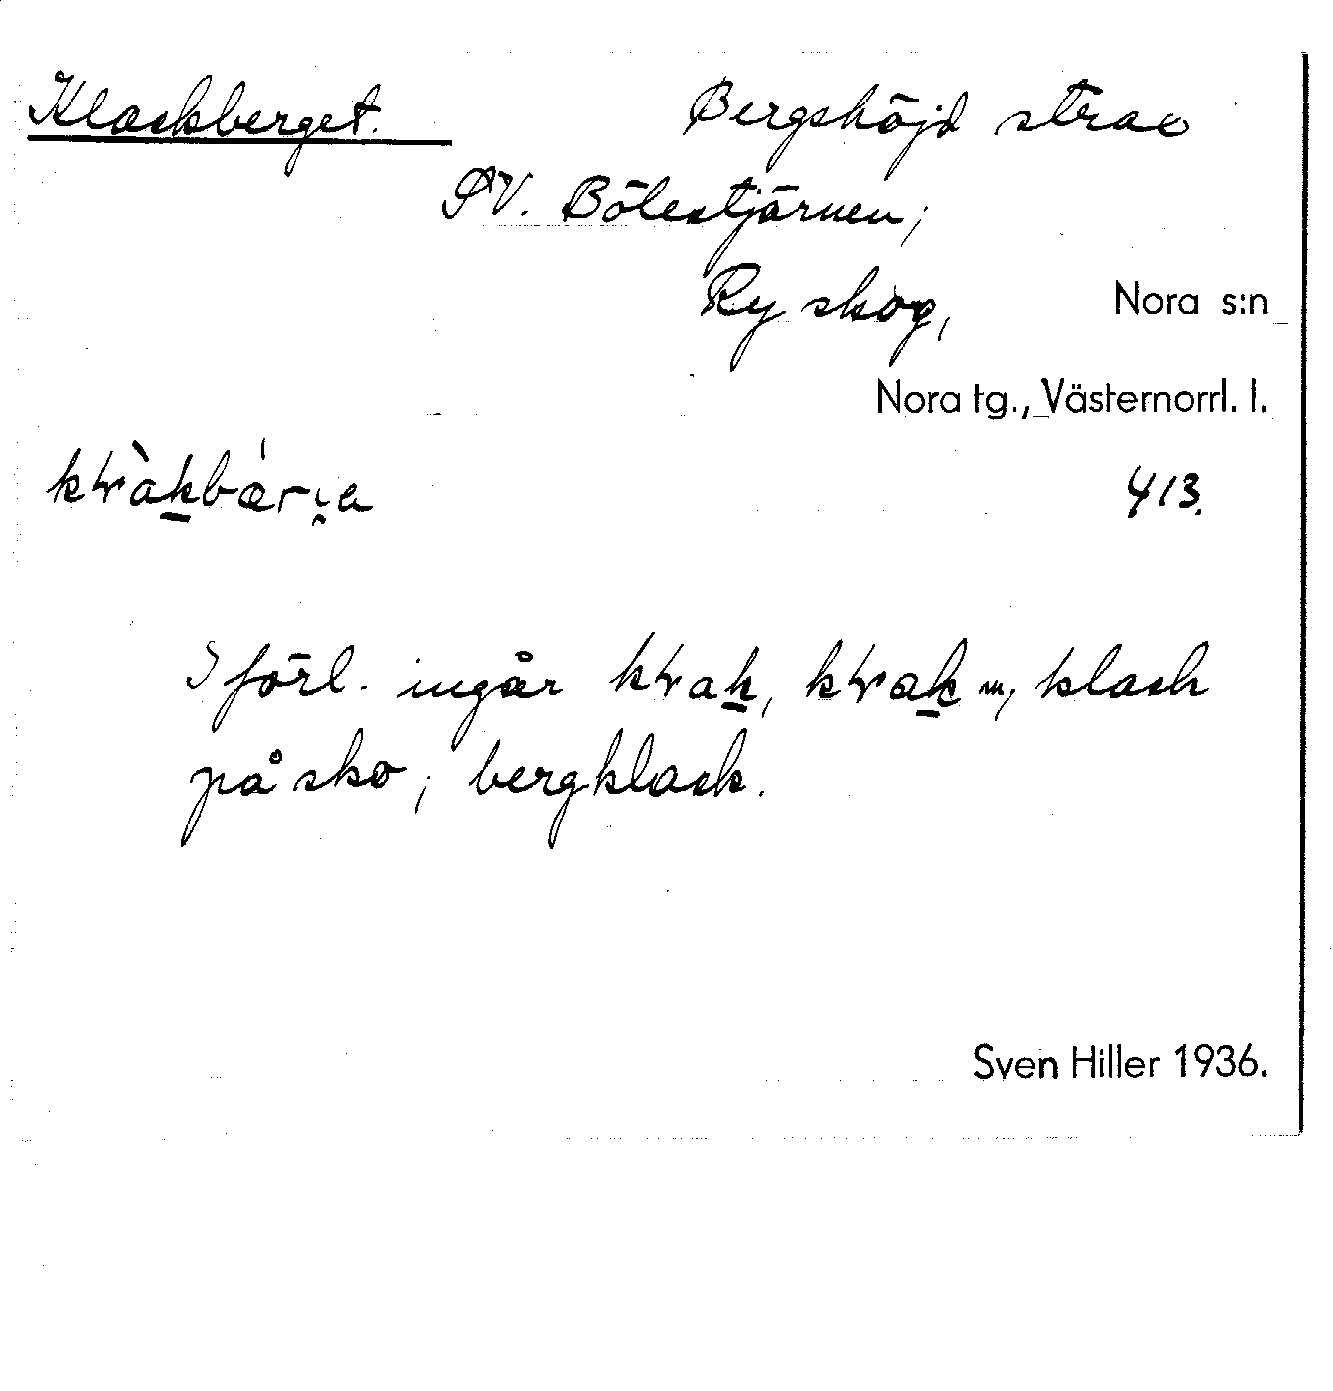 Klackberget. Bergshöjd strax
SV. Bölestjärnen;
Ry skog, Nora s:n
Nora tg., Västernorrl. l.
413.
I förl. ingår m, klack
på sko; bergklack.
Sven Hiller 1936.